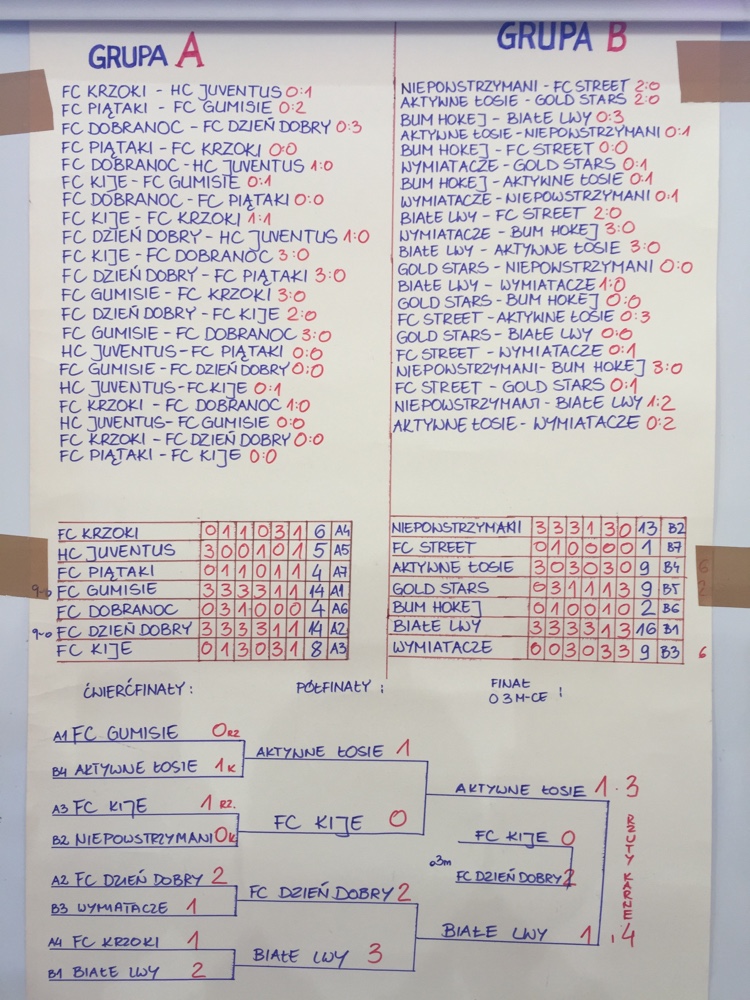 GRUPA A
FC KRZOKI - HC JUVENTUS 0:1
FC PIĄTAKI - FC GUMISIE 0:2
FC DOBRANOC - FC DZIEŃ DOBRY 0:3
FC PIĄTAKI - FC KRZOKI 0:0
FC DOBRANOC - HC JUVENTUS 1:0
FC KIJE - FC GUMISIE 0:1
FC DOBRANOC - FC PIĄTAKI 0:0
FC KIJE - FC KRZOKI 1:1
FC DZIEŃ DOBRY - HC JUVENTUS 1:0
FC KIJE - FC DOBRANOC 3:0
FC DZIEŃ DOBRY - FC PIĄTAKI 3:0
FC GUMISIE - FC KRZOKI 3:0
FC DZIEŃ DOBRY - FC KIJE 2:0
FC GUMISIE - FC DOBRANOC 3:0
HC JUVENTUS - FC PIĄTAKI 0:0
FC GUMISIE - FC DZIEŃ DOBRY 0:0
HC JUVENTUS - FC KIJE 0:1
FC KRZOKI - FC DOBRANOC 1:0
HC JUVENTUS - FC GUMISIE 0:0
FC KRZOKI - FC DZIEŃ DOBRY 0:0
FC PIĄTAKI - FC KIJE 0:0
GRUPA B
NIEPOWSTRZYMANI - FC STREET 2:0
AKTYWNE ŁOSIE - GOLD STARS 2:0
BUM HOKEJ - BIAŁE LWY 0:3
AKTYWNE ŁOSIE - NIEPOWSTRZYMANI 0:1
BUM HOKEJ - FC STREET 0:0
WYMIATACZE - GOLD STARS 0:1
BUM HOKEJ - AKTYWNE ŁOSIE 0:1
WYMIATACZE - NIEPOWSTRZYMANI 0:1
BIAŁE LWY - FC STREET 2:0
WYMIATACZE - BUM HOKEJ 3:0
BIAŁE LWY - AKTYWNE ŁOSIE 3:0
GOLD STARS - NIEPOWSTRZYMANI 0:0
BIAŁE LWY - WYMIATACZE 1:0
GOLD STARS - BUM HOKEJ 0:0
FC STREET - AKTYWNE ŁOSIE 0:3
GOLD STARS - BIAŁE LWY 0:0
FC STREET - WYMIATACZE 0:1
NIEPOWSTRZYMANI - BUM HOKEJ 3:0
FC STREET - GOLD STARS 0:1
NIEPOWSTRZYMANI - BIAŁE LWY 1:2
AKTYWNE ŁOSIE - WYMIATACZE 0:2
FC KRZOKI 0 1 1 0 3 1 6 A4
HC JUVENTUS 3 0 0 1 0 1 5 A5
FC PIĄTAKI 0 1 1 0 1 1 4 A7
9-0 FC GUMISIE 3 3 3 3 1 1 14 A1
FC DOBRANOC 0 3 1 0 0 0 4 A6
9-0 FC DZIEŃ DOBRY 3 3 3 3 1 1 14 A2
FC KIJE 0 1 3 0 3 1 8 A3
NIEPOWSTRZYMANI 3 3 3 1 3 0 13 B2
FC STREET 0 1 0 0 0 0 1 B7
AKTYWNE ŁOSIE 3 0 3 0 3 0 9 B4 6
GOLD STARS 0 3 1 1 1 3 9 B5 2
BUM HOKEJ 0 1 0 0 1 0 2 B6
BIAŁE LWY 3 3 3 3 1 3 16 B1
WYMIATACZE 0 0 3 0 3 3 9 B3 6
ĆWIERĆFINAŁY:
A1 FC GUMISIE 0 RZ
B4 AKTYWNE ŁOSIE 1 K
A3 FC KIJE 1 RZ.
B2 NIEPOWSTRZYMANI 0 K
A2 FC DZIEŃ DOBRY 2
B3 WYMIATACZE 1
A4 FC KRZOKI 1
B1 BIAŁE LWY 2
PÓŁFINAŁY:
AKTYWNE ŁOSIE 1
FC KIJE 0
FC DZIEŃ DOBRY 2
BIAŁE LWY 3
FINAŁ
O 3 M-CE:
AKTYWNE ŁOSIE 1. 3
FC KIJE 0
o3m
FC DZIEŃ DOBRY 2
BIAŁE LWY 1. 4
RZUTY KARNE